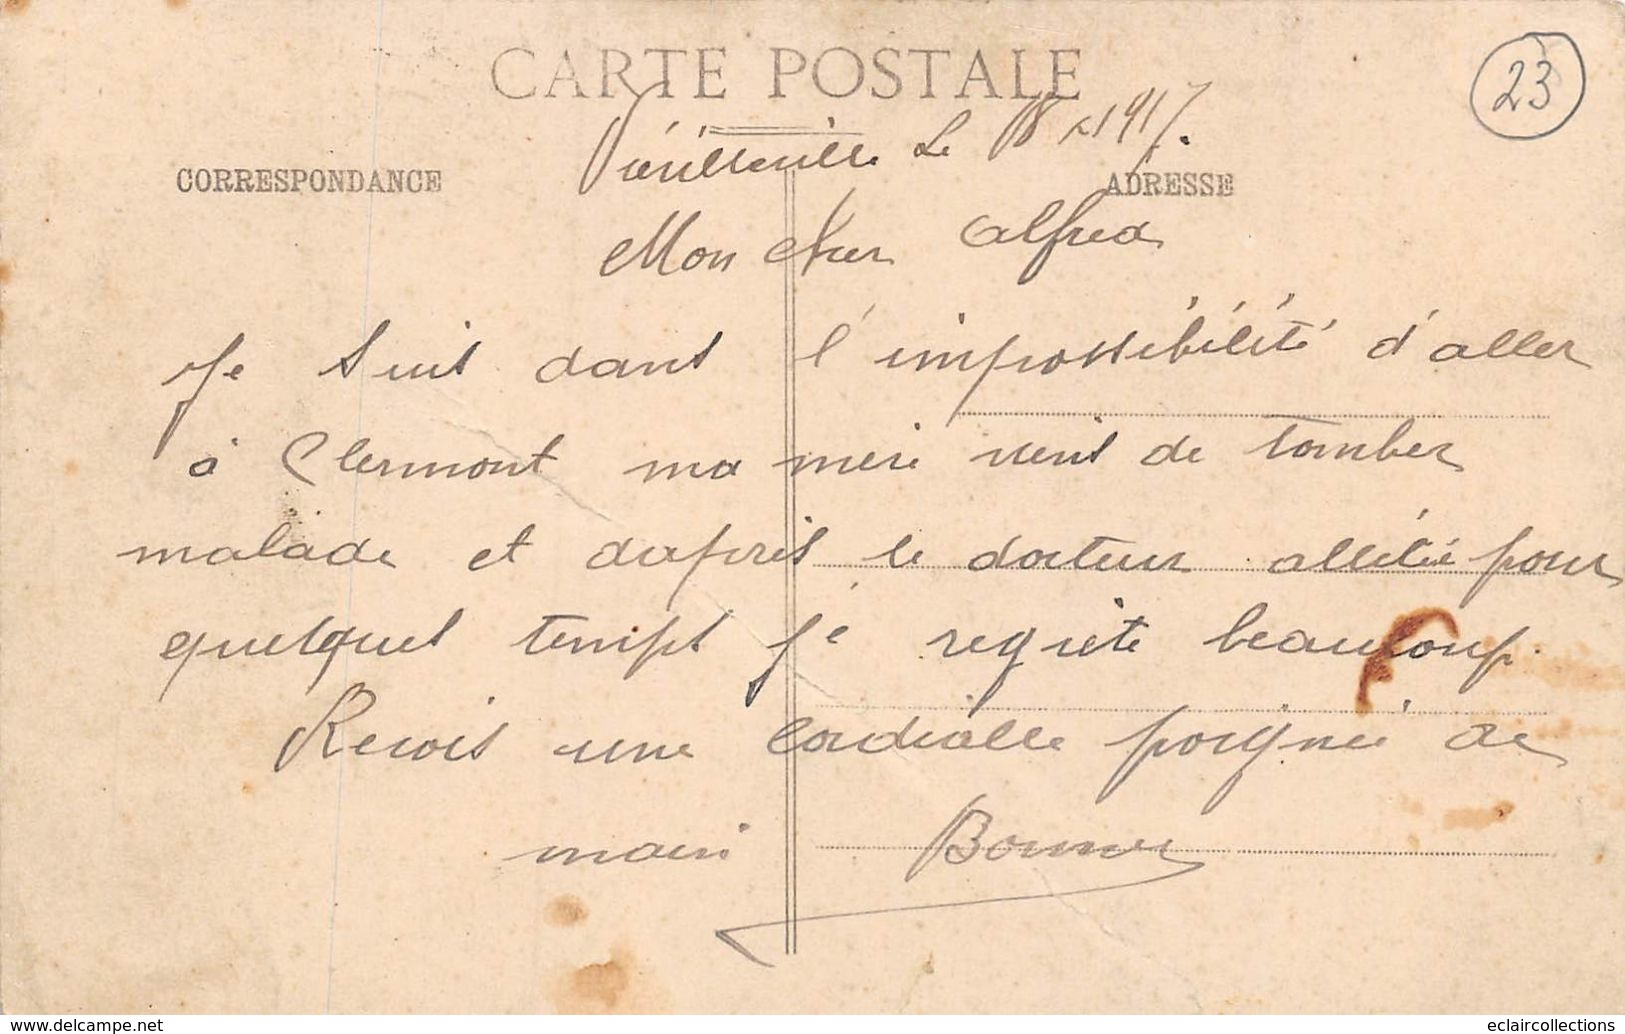 CARTE POSTALE
23
Vieilleville Le 18 x 1917.
CORRESPONDANCE
ADRESSE
Mon cher Alfred
Je suis dans l'impossibilité d'aller
à Clermont ma mère viens de tomber
malade et dapres le docteur allitée pour
quelques temps je regrete beaucoup.
Recois une cordialle poignée de
main
www.delcampe.net
eclaircollections